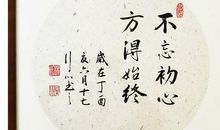 不忘初心
方得始终
歲在丁酉
亥六月十七